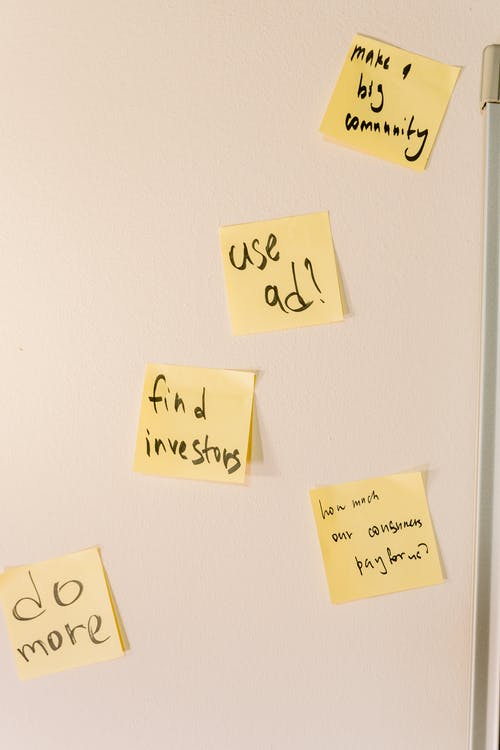 make a
big
community
use
ad!
find
investors
how much
our consumers
pay for us?
do
more